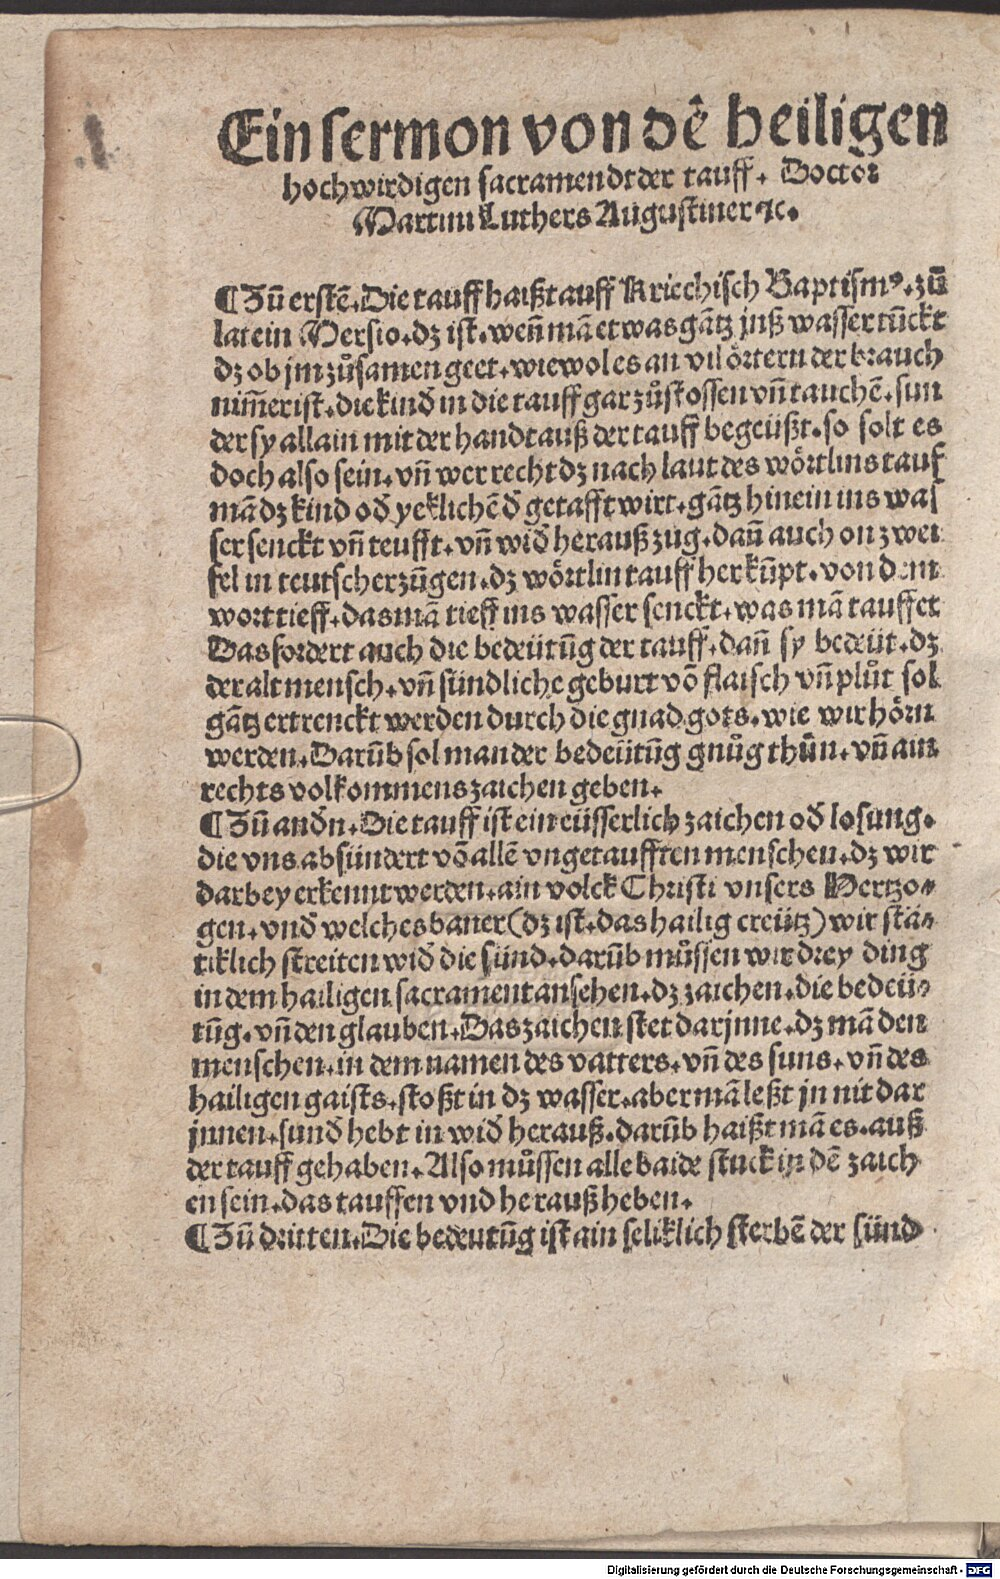 Ein sermon von dē heiligen
hochwirdigen sacramendt der tauff. Doctor
Martini Luthers Augustiner ⁊c.
¶ Zū erstē. Die tauff haißt tauff Kriechisch Baptismꝰ. zū
latein Mersio. dz ist. weñ mā etwas gātz jnß wasser tūckt
dz ob jm zůsamen geet. wiewol es an vil örtern der brauch
nim̄er ist. die kind in die tauff gar zůstossen vñ tauchē. sun
der sy allain mit der handt auß der tauff begeüßt. so solt es
doch also sein. vñ wer recht dz nach laut des wörtlins tauf
mā dz kind od̄ yeklichē d̄ getafft wirt. gātz hinein ins was
ser senckt vñ teufft. vñ wid̄ herauß zug. dañ auch on zwei
fel in teutscher zūgen. dz wörtlin tauff herkūpt. von dem
wort tieff. das mā tieff ins wasser senckt. was mā tauffet
Das fordert auch die bedeütūg der tauff. dañ sy bedeüt. dz
der alt mensch. vñ sündliche geburt vō flaisch vñ plůt sol
gātz ertrenckt werden durch die gnad gots. wie wir hörn
werden. Darūb sol man der bedeütūg gnůg thůn. vñ ain
rechts volkommens zaichen geben.
¶ Zū and̄n. Die tauff ist ein eüsserlich zaichen od̄ losung.
die vns absündert vō allē vngetaufften menschen. dz wir
darbey erkennt werden. ain volck Christi vnsers Hertzo⸗
gen. vnd̄ welches baner (dz ist. das hailig creütz) wir stä⸗
tiklich streiten wid̄ die sünd. darūb můssen wir drey ding
in dem hailigen sacrament ansehen. dz zaichen. die bedeü⸗
tūg. vñ den glauben. Das zaichen stet darjnne. dz mā den
menschen. in dem namen des vatters. vñ des suns. vñ des
hailigen gaists. stoßt in dz wasser. aber mā leßt jn nit dar
jnnen. sund̄ hebt in wid̄ herauß. darūb haißt mā es. auß
der tauff gehaben. Also můssen alle baide stuck in dē zaich
en sein. das tauffen vnd herauß heben.
¶ Zū dritten. Die bedeutūg ist ain seliklich sterbē der sünd
Digitalisierung gefördert durch die Deutsche Forschungsgemeinschaft - DFG